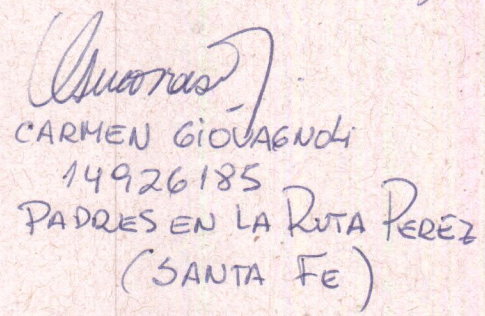 CARMEN GIOVAGNOLI
14926185
PADRES EN LA RUTA PEREZ
(SANTA FE)